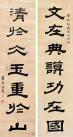 文在典謨功在國
清於仌玉重於山